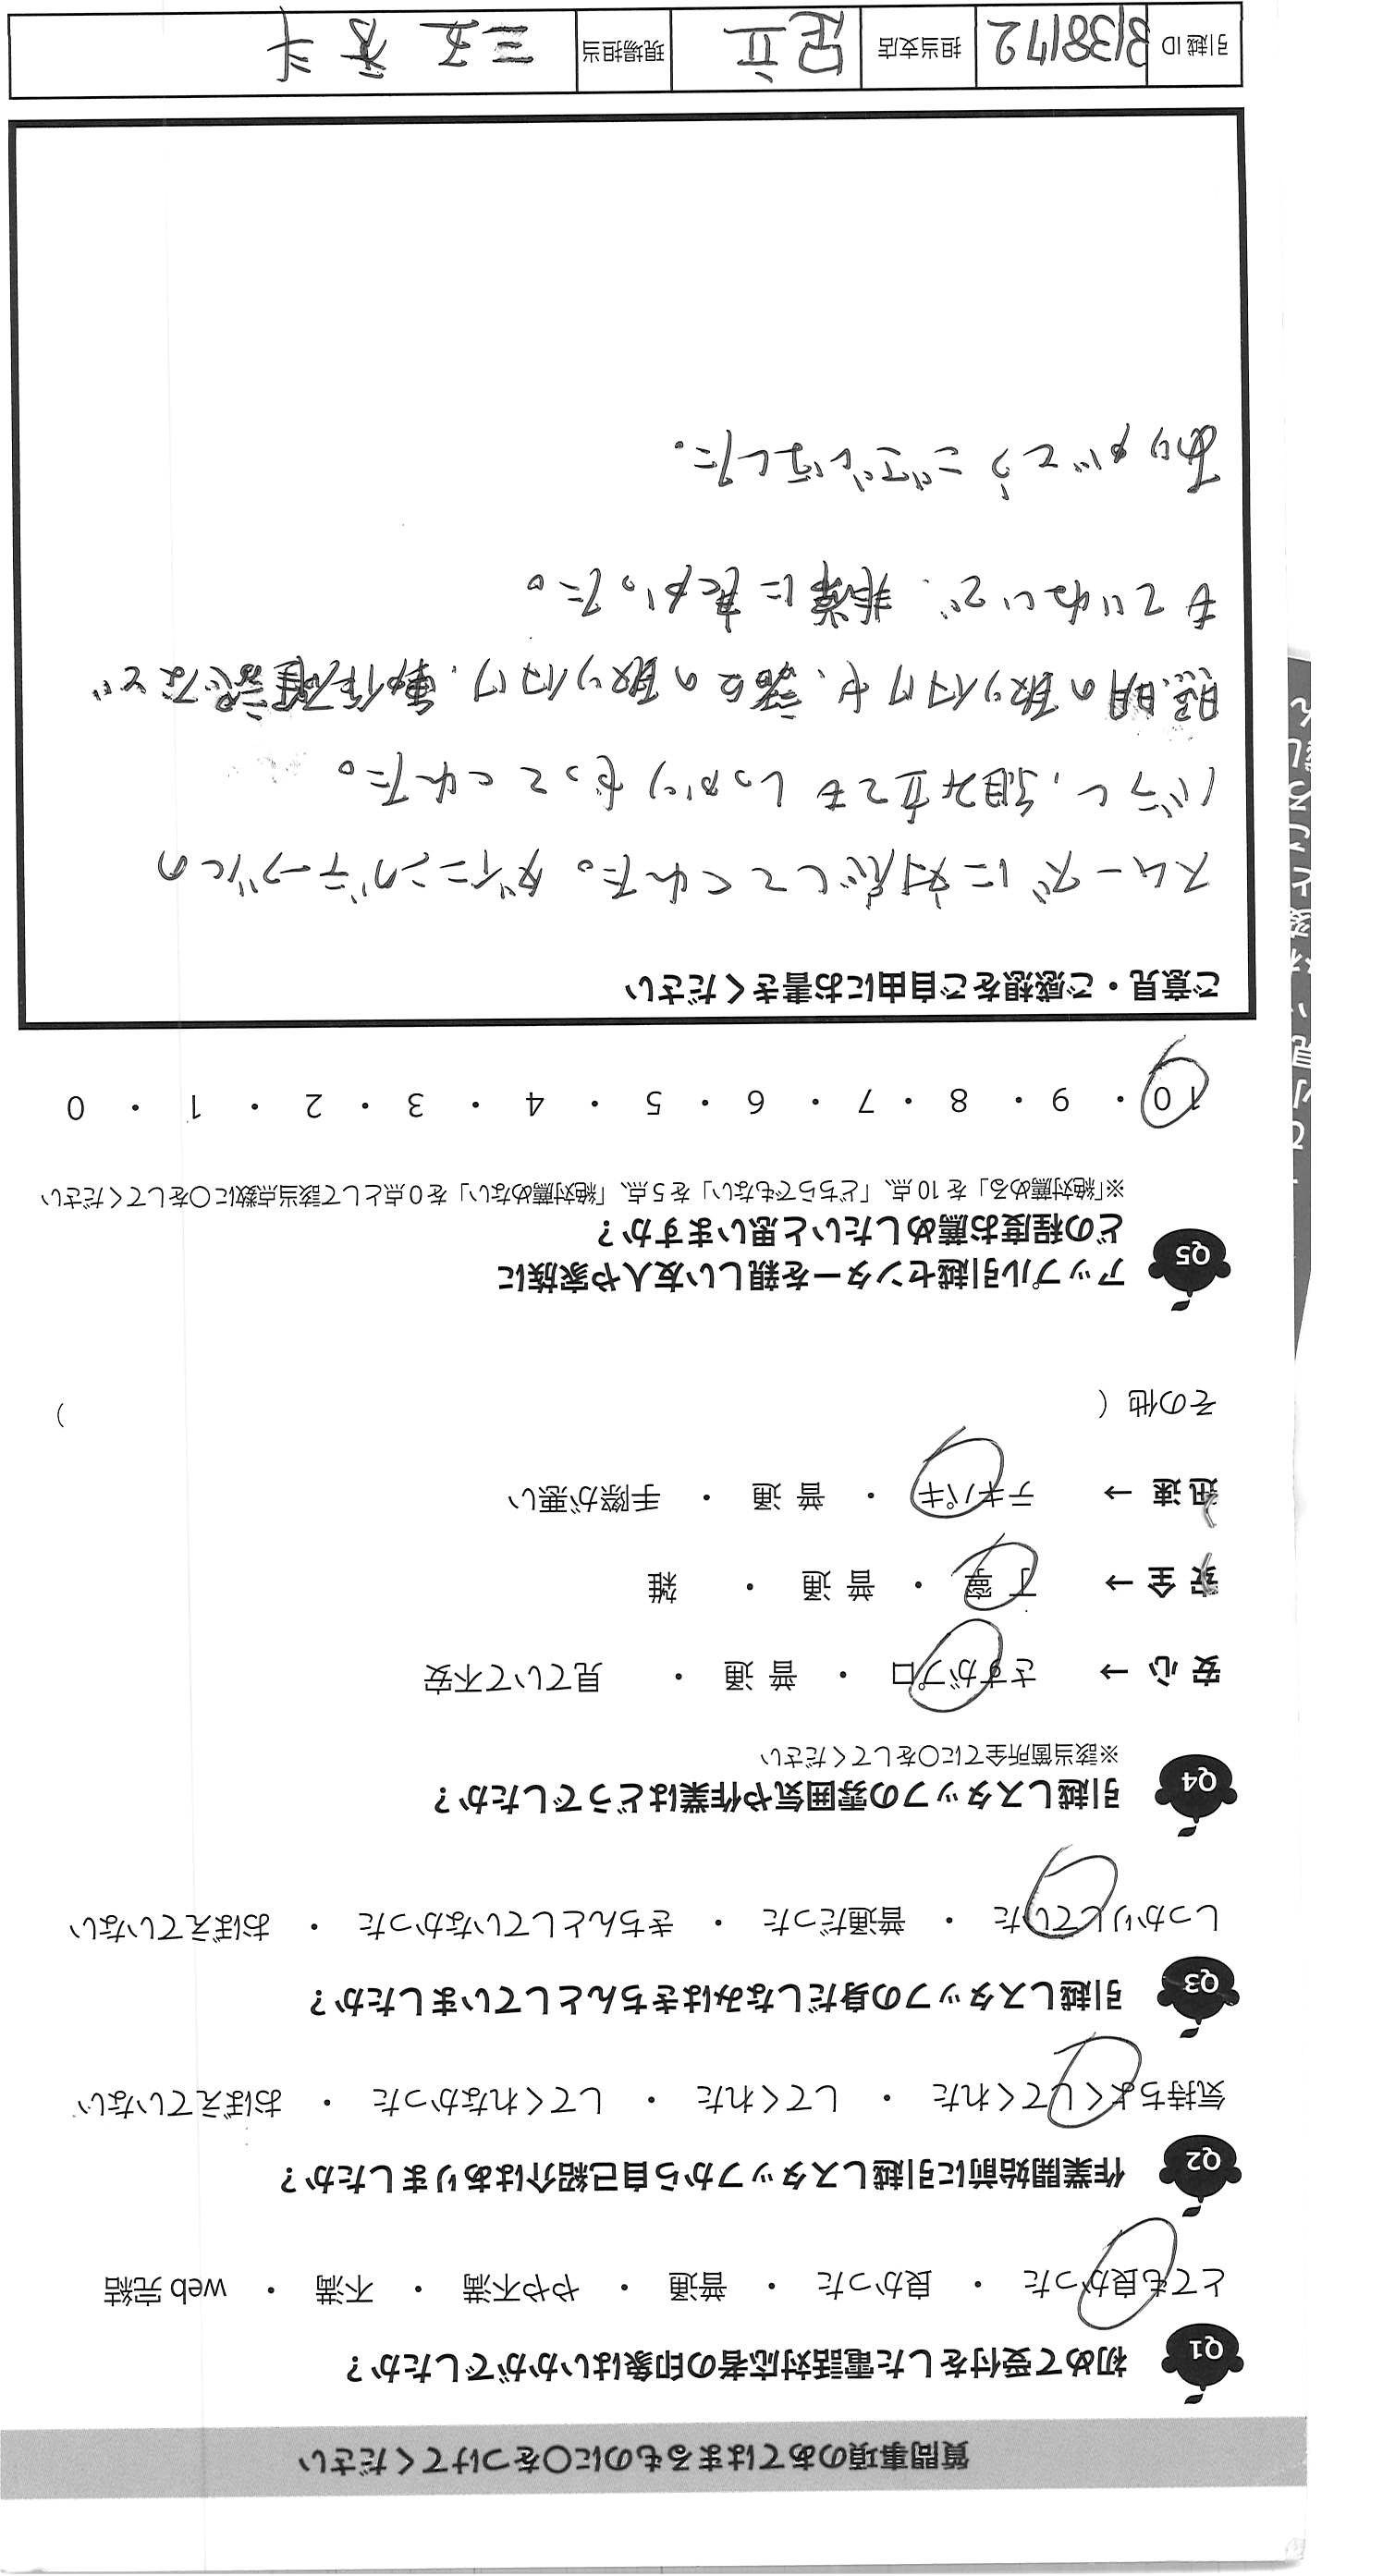 質問事項のあてはまるものに〇をつけてください
Q1 初めて受付をした電話対応者の印象はいかがでしたか？
とても良かった ・ 良かった ・ 普通 ・ やや不満 ・ 不満 ・ web 完結
Q2 作業開始前に引越しスタッフから自己紹介はありましたか？
気持ちよくしてくれた ・ してくれた ・ してくれなかった ・ おぼえていない
Q3 引越しスタッフの身だしなみはきちんとしていましたか？
しっかりしていた ・ 普通だった ・ きちんとしていなかった ・ おぼえていない
Q4 引越しスタッフの雰囲気や作業はどうでしたか？
※該当箇所全てに〇をしてください
安 心 → さすがプロ ・ 普 通 ・ 見ていて不安
安 全 → 丁 寧 ・ 普 通 ・ 雑
迅 速 → テキパキ ・ 普 通 ・ 手際が悪い
その他（ ）
Q5 アップル引越センターを親しい友人や家族に
どの程度お薦めしたいと思いますか？
※「絶対薦める」を 10 点、「どちらでもない」を 5 点、「絶対薦めない」を 0 点として該当点数に〇をしてください
10 ・ 9 ・ 8 ・ 7 ・ 6 ・ 5 ・ 4 ・ 3 ・ 2 ・ 1 ・ 0
ご意見・ご感想をご自由にお書きください
スムーズに対応してくれた。ダイニングテーブルの
バラし、組み立てもしっかりやってくれた。
照明の取り付けや、諸々の取り付け、動作確認など
もていねいで、非常に良かった。
ありがとうございました。
引越 ID 3138172 担当支店 足立 現場担当 三五